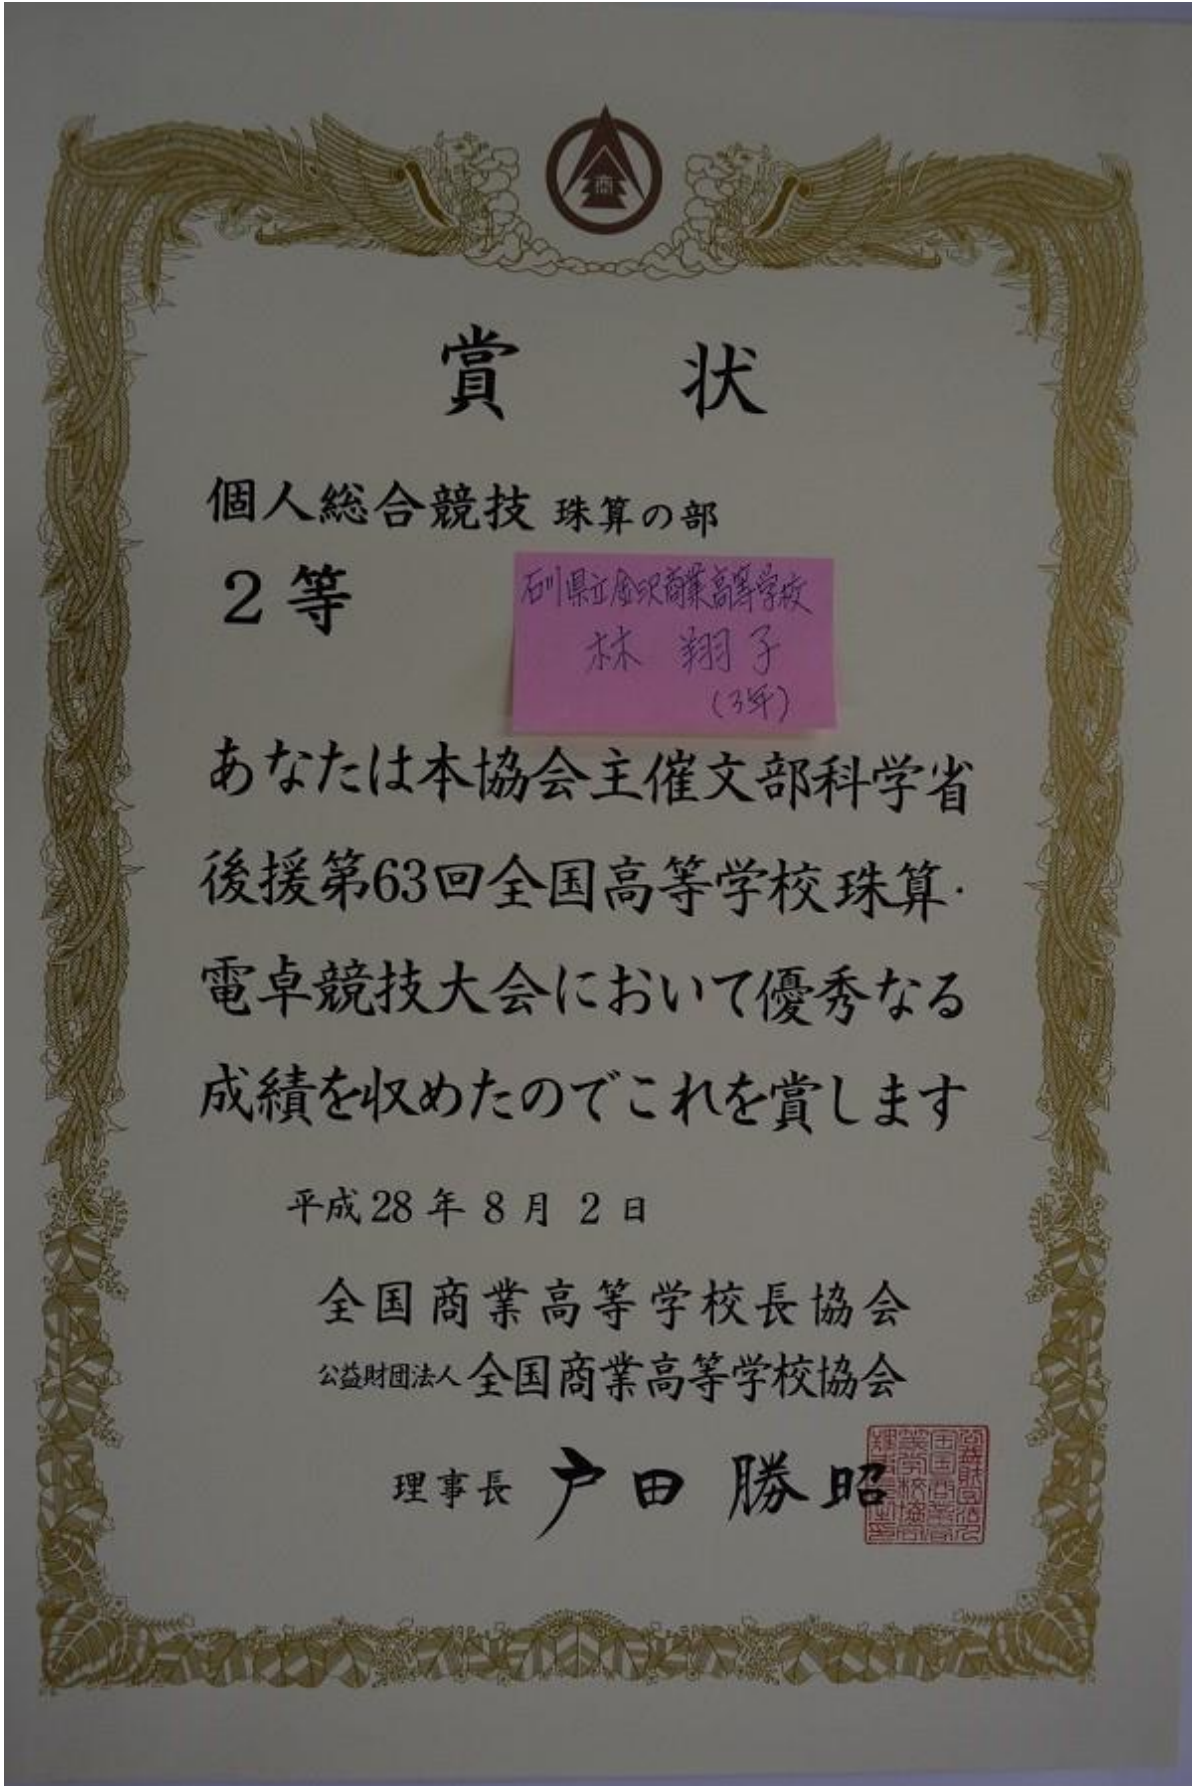 商
賞 状
個人総合競技 珠算の部
2等
石川県立金沢商業高等学校
林 翔子
(3年)
あなたは本協会主催文部科学省
後援第63回全国高等学校珠算・
電卓競技大会において優秀なる
成績を収めたのでこれを賞します
平成28年8月2日
全国商業高等学校長協会
公益財団法人 全国商業高等学校協会
理事長 戸田勝昭